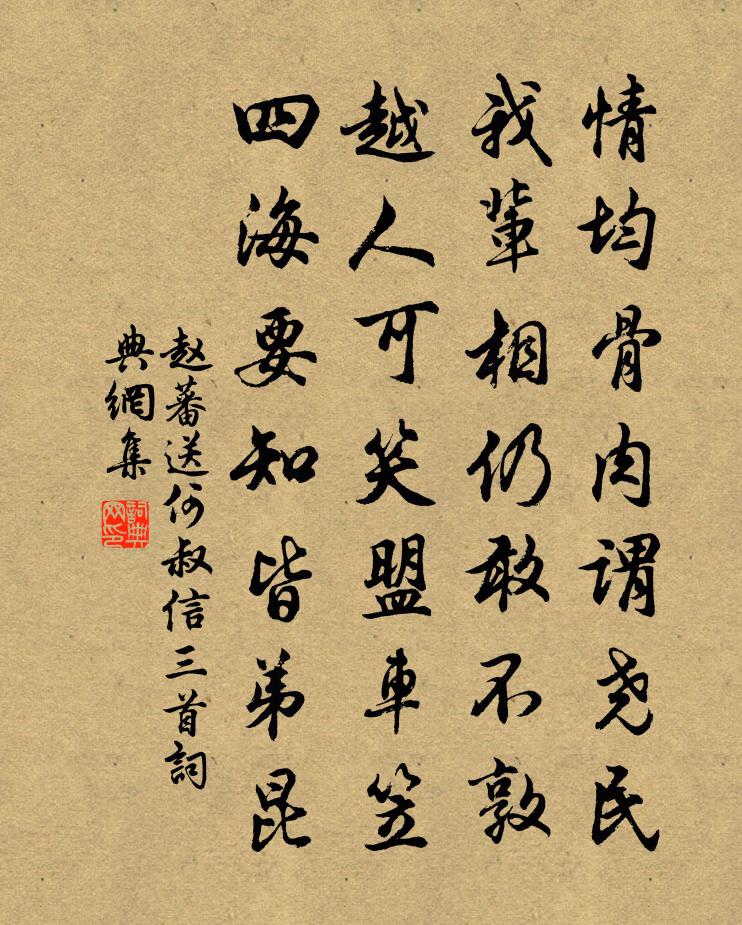 情均骨肉谓尧民
我辈相仍敢不敦
越人可笑盟車笠
四海要知皆弟昆
赵蕃送何叔信三首詞
典網集
詞典
网印